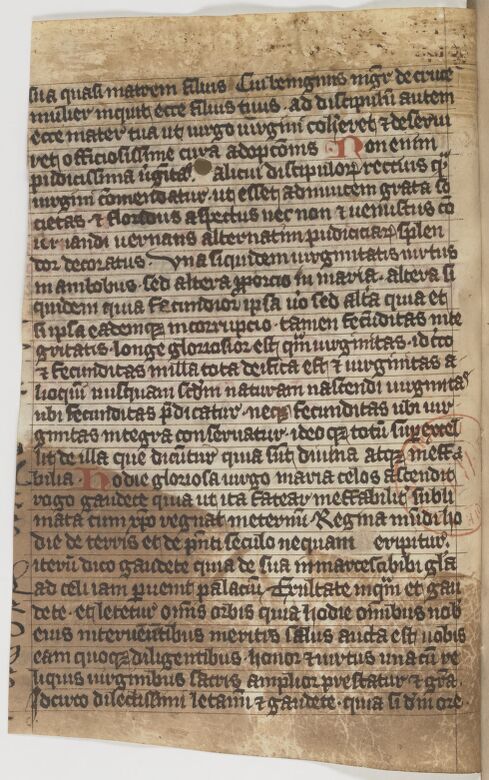 sua quasi matrem filius Cui benignus mgr de cruce
mulier inquit ecce filius tuus . ad discipulū autem
ecce mater tua ut uirgo uirgini coh̄eret ⁊ deserui
ret officiosissime cura adopcōnis Non enim
pudicissima ūgitas . alicui discipuloꝝ rectius q̄
uirgini cōmendatur . ut esset ad inuicem grata so
cietas . ⁊ floridus aspectus nec non ⁊ uenustus cō
uernans alternatim pudiciciaꝝ splen
dor decoratus Una siquidem uirginitatis uirtus
in ambobus . sed altera in maria . altera si
quidem quia fecundior ipsa uō sed alta quia et
si ipsa eademqꝫ incorrupcio . tamen fecūditas inte
gritatis . longe gloriosior est qm̄ uirginitas . idcirco
⁊ fecunditas in illa tota deifica est ⁊ uirginitas a
lioquī nusquam scdm̄ naturam nascendi uirginitas
ubi fecunditas p̄dicatur . neqꝫ fecunditas ubi uir
ginitas integra conseruatur . ideoqꝫ totū suꝑexcel
lit de illa que dicūtur quia sūt diuina atqꝫ ineffa
bilia . Hodie gloriosa uirgo maria celos ascendit
rogo gaudete quia ut ita fatear ineffabilit̄ subli
mata cum xp̄o regnat in eternū . Regina mūdi ho
die de terris et de p̄nti seculo nequam eripitur .
iterū dico gaudete quia de sua inmarcescibili gl̄ia
ad celi iam ꝑuenit palaciū Exultate inqm̄ et gau
dete . et letetur om̄is orbis quia hodie om̄ibus nob̄
eius interuenientibus meritis salus aucta est uobis
eam quoqꝫ diligentibus honor ⁊ uirtus una cū re
liquis uirginibus sacris amplior prestatur ⁊ gr̄a .
Idcirco dilectissimi letamī ⁊ gaudete . quia si dm̄ ore